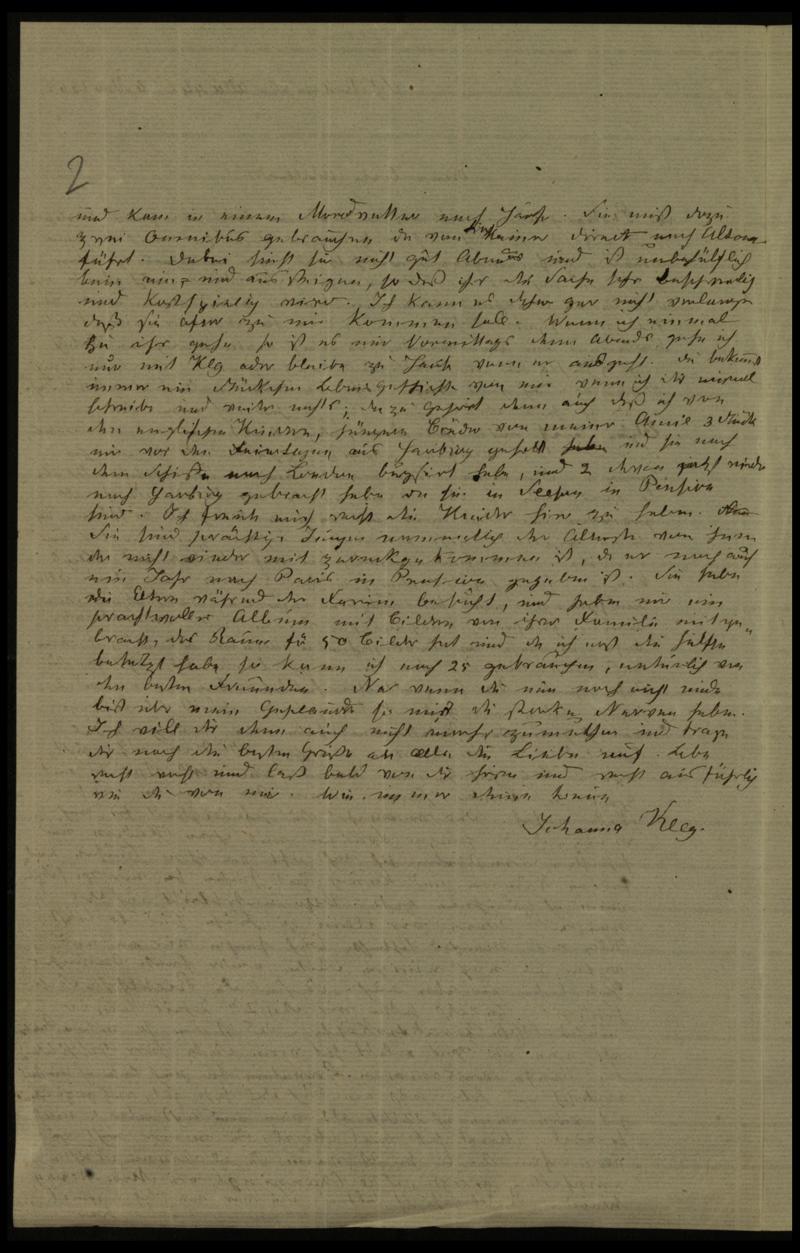 2
und kam in einem Mordwetter nach Hause. Sie muß dazu
zwei Omnibus gebrauchen da von hier keiner direct nach Altona
führt. Dabei sieht sie nicht gut Abends und ist unbehülflich
beim ein- und aussteigen, so daß ihr die Sache sehr beschwerlich
und kostspielig wird. Ich kann es daher gar nicht verlangen
daß sie öfter zu mir kommen soll. Wenn ich einmal
zu ihr gehe so ist es nur Vormittags denn Abends gehe ich
nur mit Klg oder bleibe zu Hause wenn er ausgeht. Du bekommst
immer ein Stückchen Lebensgeschichte von mir wenn ich dir einmal
schreibe und weiter nichts; dazu gehört denn auch daß ich von
den englischen Kindern, jüngeren Brüder von meiner Annie 3 Stück
mir vor den Feiertagen aus Harburg geholt und sie nach
dem Schiffe nach London bugsirt habe, und 2 davon jetzt wieder
nach Harburg gebracht habe da sie in Seesen in Pension
sind. Ich freute mich recht die Kinder hier zu haben.
Sie sind prächtige Jungen namentlich der Älteste von ihnen
der nicht wieder mit zurückgekommen ist, da er noch auch
ein Jahr nach Paris in Pension gegeben ist. Sie haben
die Eltern während der Ferien besucht, und haben mir ein
prachtvolles Album mit Bildern von ihrer Familie mitge-
bracht, das Raum für 50 Bilder hat und da ich erst die Hälfte
besetzt habe so kann ich noch 25 gebrauchen, natürlich von
den besten Freunden. Na wenn du nun noch nicht müde
bist über mein Geplauder so mußt du starke Nerven haben.
Ich will dir denn auch nicht mehr zumuthen und trage
dir noch die besten Grüße an alle die Lieben auf. Lebe
recht wohl und laß bald von dir hören und recht ausführlich
wie du von mir. Wie immer deine treue
Johanna Kleg.